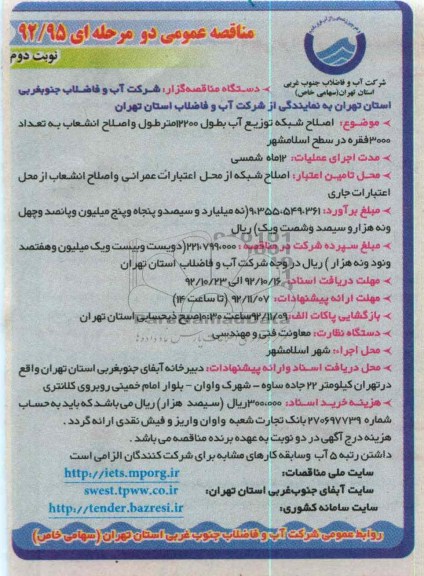 مناقصه عمومی دو مرحله ای ۹۲/۹۵
نوبت دوم
شرکت آب و فاضلاب جنوب غربی
استان تهران(سهامی خاص)
دستگاه مناقصه‌گزار: شرکت آب و فاضلاب جنوبغربی
استان تهران به نمایندگی از شرکت آب و فاضلاب استان تهران
موضوع: اصلاح شبکه توزیع آب بطول ۱۲۲۰۰مترطول واصلاح انشعاب به تعداد
۳۰۰۰فقره در سطح اسلامشهر
مدت اجرای عملیات: ۱۲ماه شمسی
محل تامین اعتبار: اصلاح شبکه از محل اعتبارات عمرانی واصلاح انشعاب از محل
اعتبارات جاری
مبلغ برآورد: ۹،۳۵۵،۵۴۹،۳۶۱(نه میلیارد و سیصدو پنجاه وپنج میلیون وپانصد وچهل
ونه هزار و سیصد وشصت ویک) ریال
مبلغ سپرده شرکت در مناقصه: ۲۲۱،۷۹۹،۰۰۰ (دویست وبیست ویک میلیون وهفتصد
ونود ونه هزار) ریال در وجه شرکت آب و فاضلاب استان تهران
مهلت دریافت اسناد: ۹۲/۱۰/۱۶ الی ۹۲/۱۰/۲۳
مهلت ارائه پیشنهادات: ۹۲/۱۱/۰۷ (تا ساعت ۱۴)
بازگشایی پاکات الف: ۹۲/۱۱/۰۹ساعت ۱۰:۳۰صبح ذیحسابی استان تهران
دستگاه نظارت: معاونت فنی و مهندسی
محل اجرا: شهر اسلامشهر
محل دریافت اسناد وارائه پیشنهادات: دبیرخانه آبفای جنوبغربی استان تهران واقع
درتهران کیلومتر ۲۲ جاده ساوه – شهرک واوان – بلوار امام خمینی روبروی کلانتری
هزینه خرید اسناد: ۳۰۰،۰۰۰ریال (سیصد هزار) ریال می‌باشد که باید به حساب
شماره ۲۷۰۶۹۷۷۳۹ بانک تجارت شعبه واوان واریز و فیش نقدی ارائه گردد.
هزینه درج آگهی در دو نوبت به عهده برنده مناقصه می باشد.
داشتن رتبه ۵ آب وسابقه کارهای مشابه برای شرکت کنندگان الزامی است
سایت ملی مناقصات: http://iets.mporg.ir
سایت آبفای جنوب‌غربی استان تهران: swest.tpww.co.ir
سایت سامانه کشوری: http://tender.bazresi.ir
روابط عمومی شرکت آب و فاضلاب جنوب غربی استان تهران (سهامی خاص)